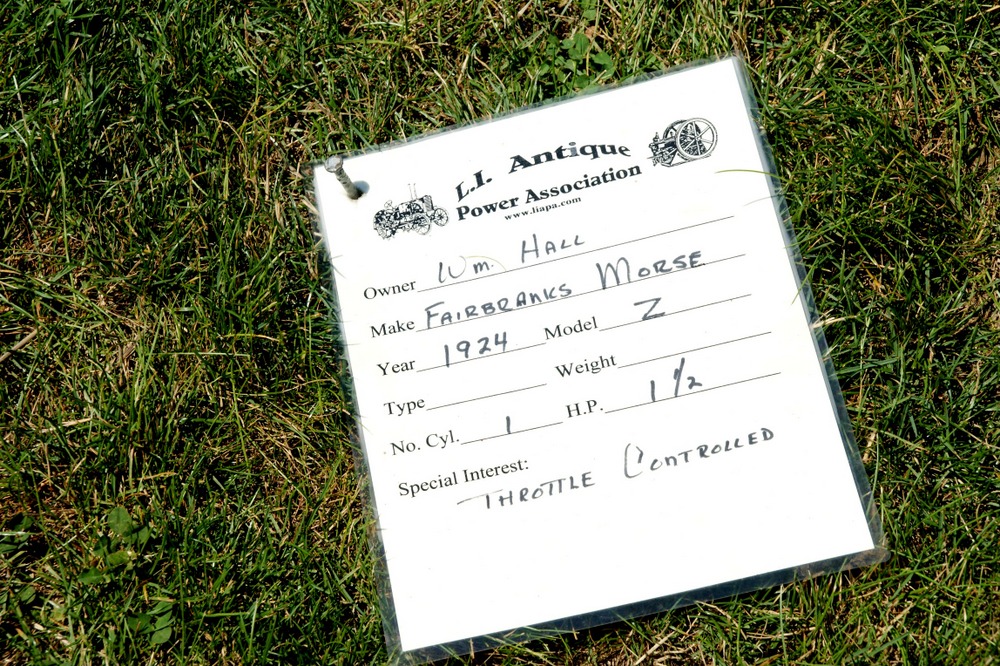 L.I. Antique
Power Association
www.liapa.com
Owner Wm. HALL
Make FAIRBRANKS MORSE
Year 1924 Model Z
Type Weight
No. Cyl. 1 H.P. 1 1/2
Special Interest:
THROTTLE CONTROLLED